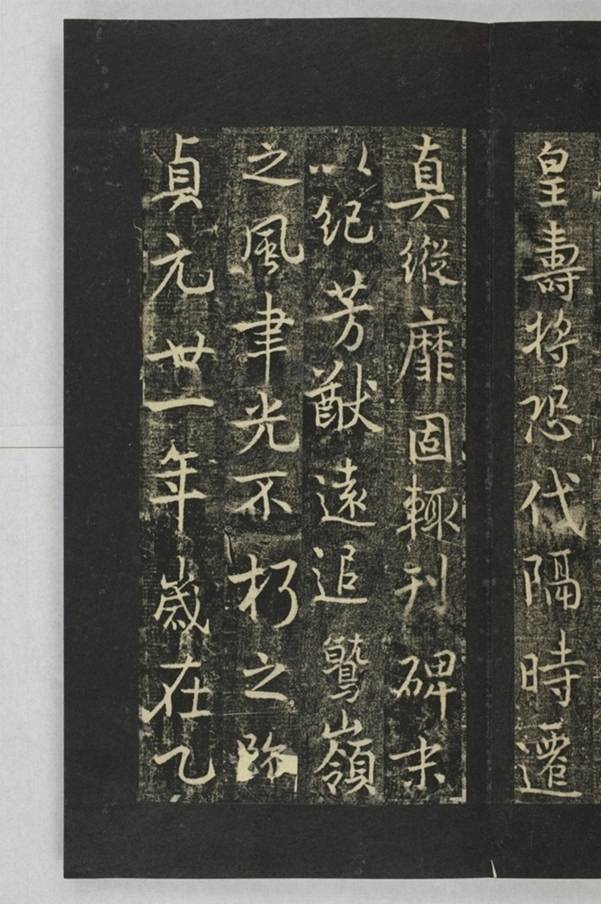 皇壽将恐代隔時遷
真縱靡固輙刊碑末
以紀芳猷遠追鷲嶺
之風聿光不朽之跡
貞元廿一年歲在乙